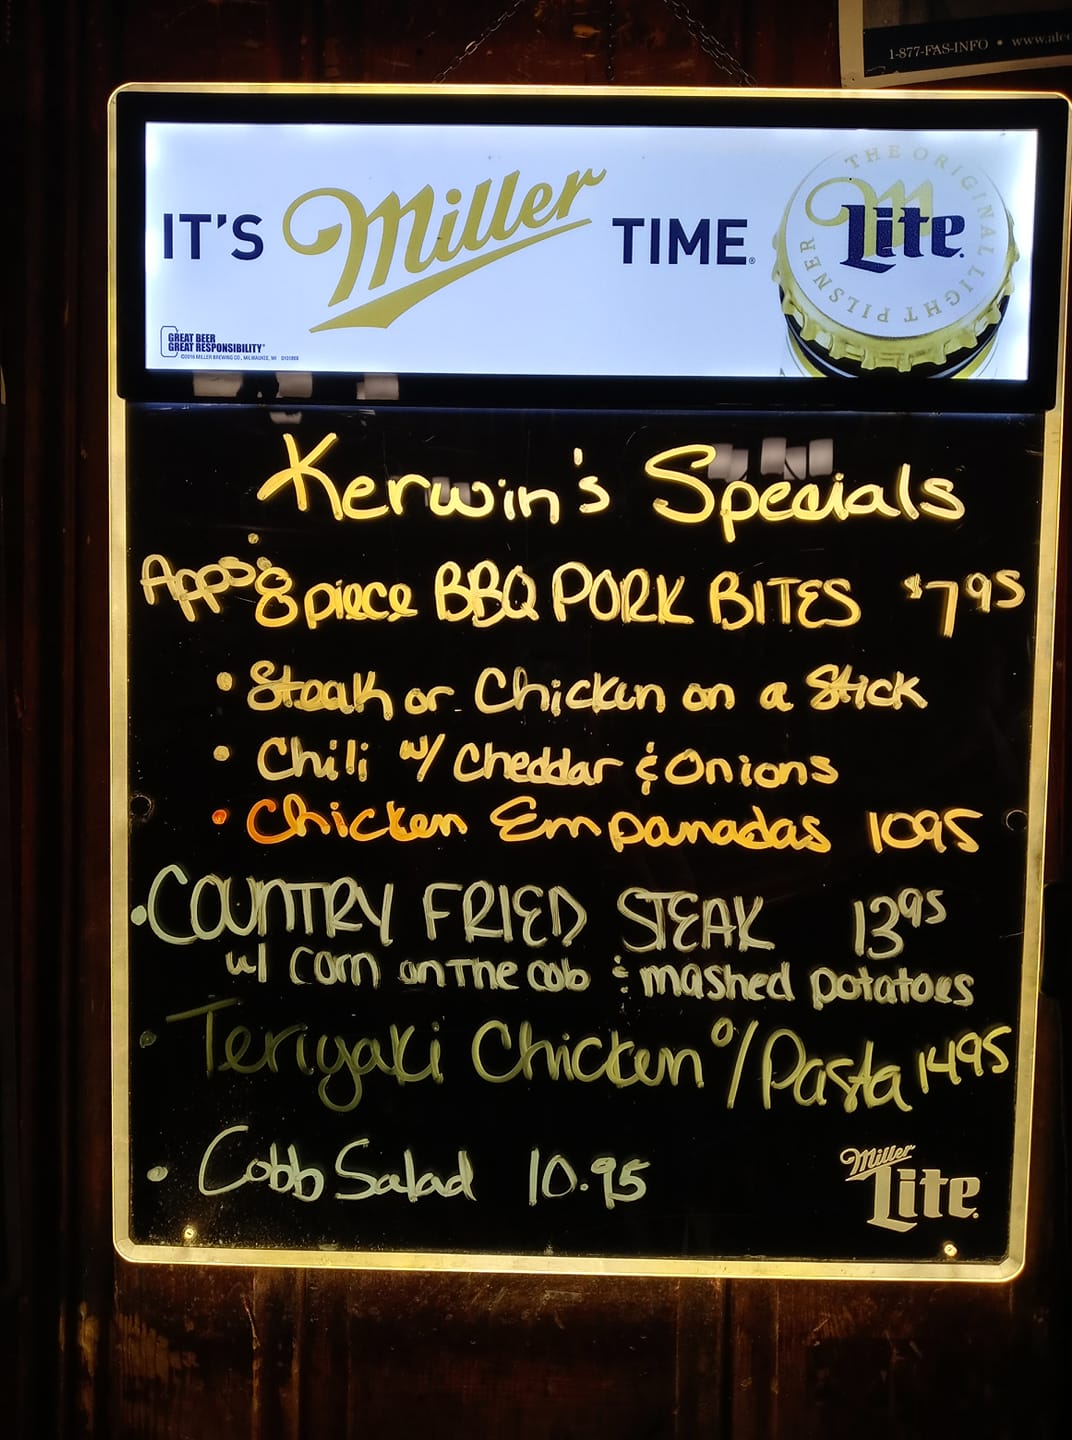 1-877-FAS-INFO • www.alco
IT'S Miller TIME®
THE ORIGINAL LIGHT PILSNER
Lite
GREAT BEER
GREAT RESPONSIBILITY®
©2016 MILLER BREWING CO., MILWAUKEE, WI
Kerwin's Specials
Apps: 8 piece BBQ PORK BITES $7.95
• Steak or Chicken on a Stick
• Chili w/ Cheddar & Onions
• Chicken Empanadas 1095
• COUNTRY FRIED STEAK 1395
w/ corn on the cob & mashed potatoes
• Teriyaki Chicken o/ Pasta 1495
• Cobb Salad 10.95
Miller
Lite